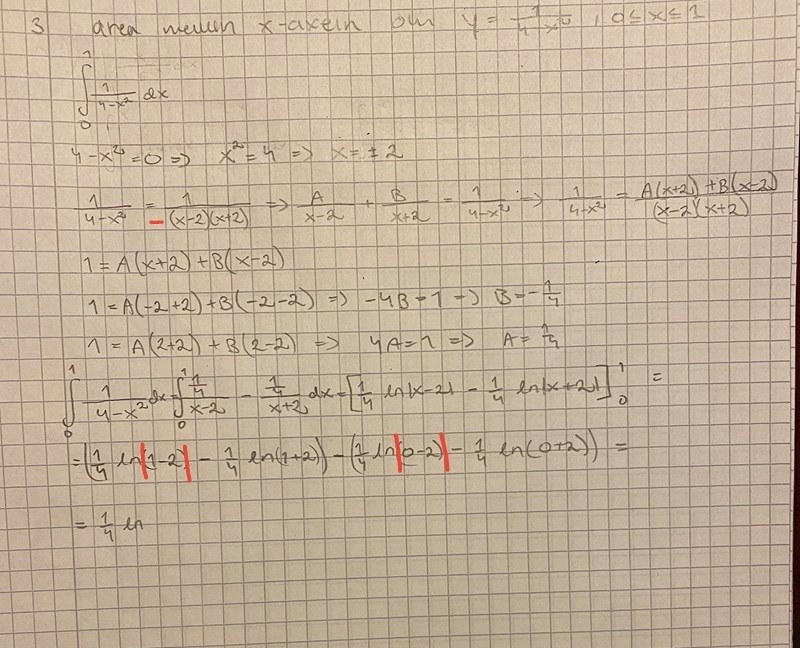 3 area mellan x-axeln och y = 1/(4-x²), 0 ≤ x ≤ 1
∫₀¹ 1/(4-x²) dx
4-x² = 0 => x² = 4 => x = ±2
1/(4-x²) = -1/((x-2)(x+2)) => A/(x-2) + B/(x+2) = 1/(4-x²) => 1/(4-x²) = (A(x+2) + B(x-2))/((x-2)(x+2))
1 = A(x+2) + B(x-2)
1 = A(-2+2) + B(-2-2) => -4B = 1 => B = -1/4
1 = A(2+2) + B(2-2) => 4A = 1 => A = 1/4
∫₀¹ 1/(4-x²) dx = ∫₀¹ (1/4)/(x-2) - (1/4)/(x+2) dx = [1/4 ln|x-2| - 1/4 ln|x+2|]₀¹ =
= (1/4 ln|1-2| - 1/4 ln(1+2)) - (1/4 ln|0-2| - 1/4 ln(0+2)) =
= 1/4 ln